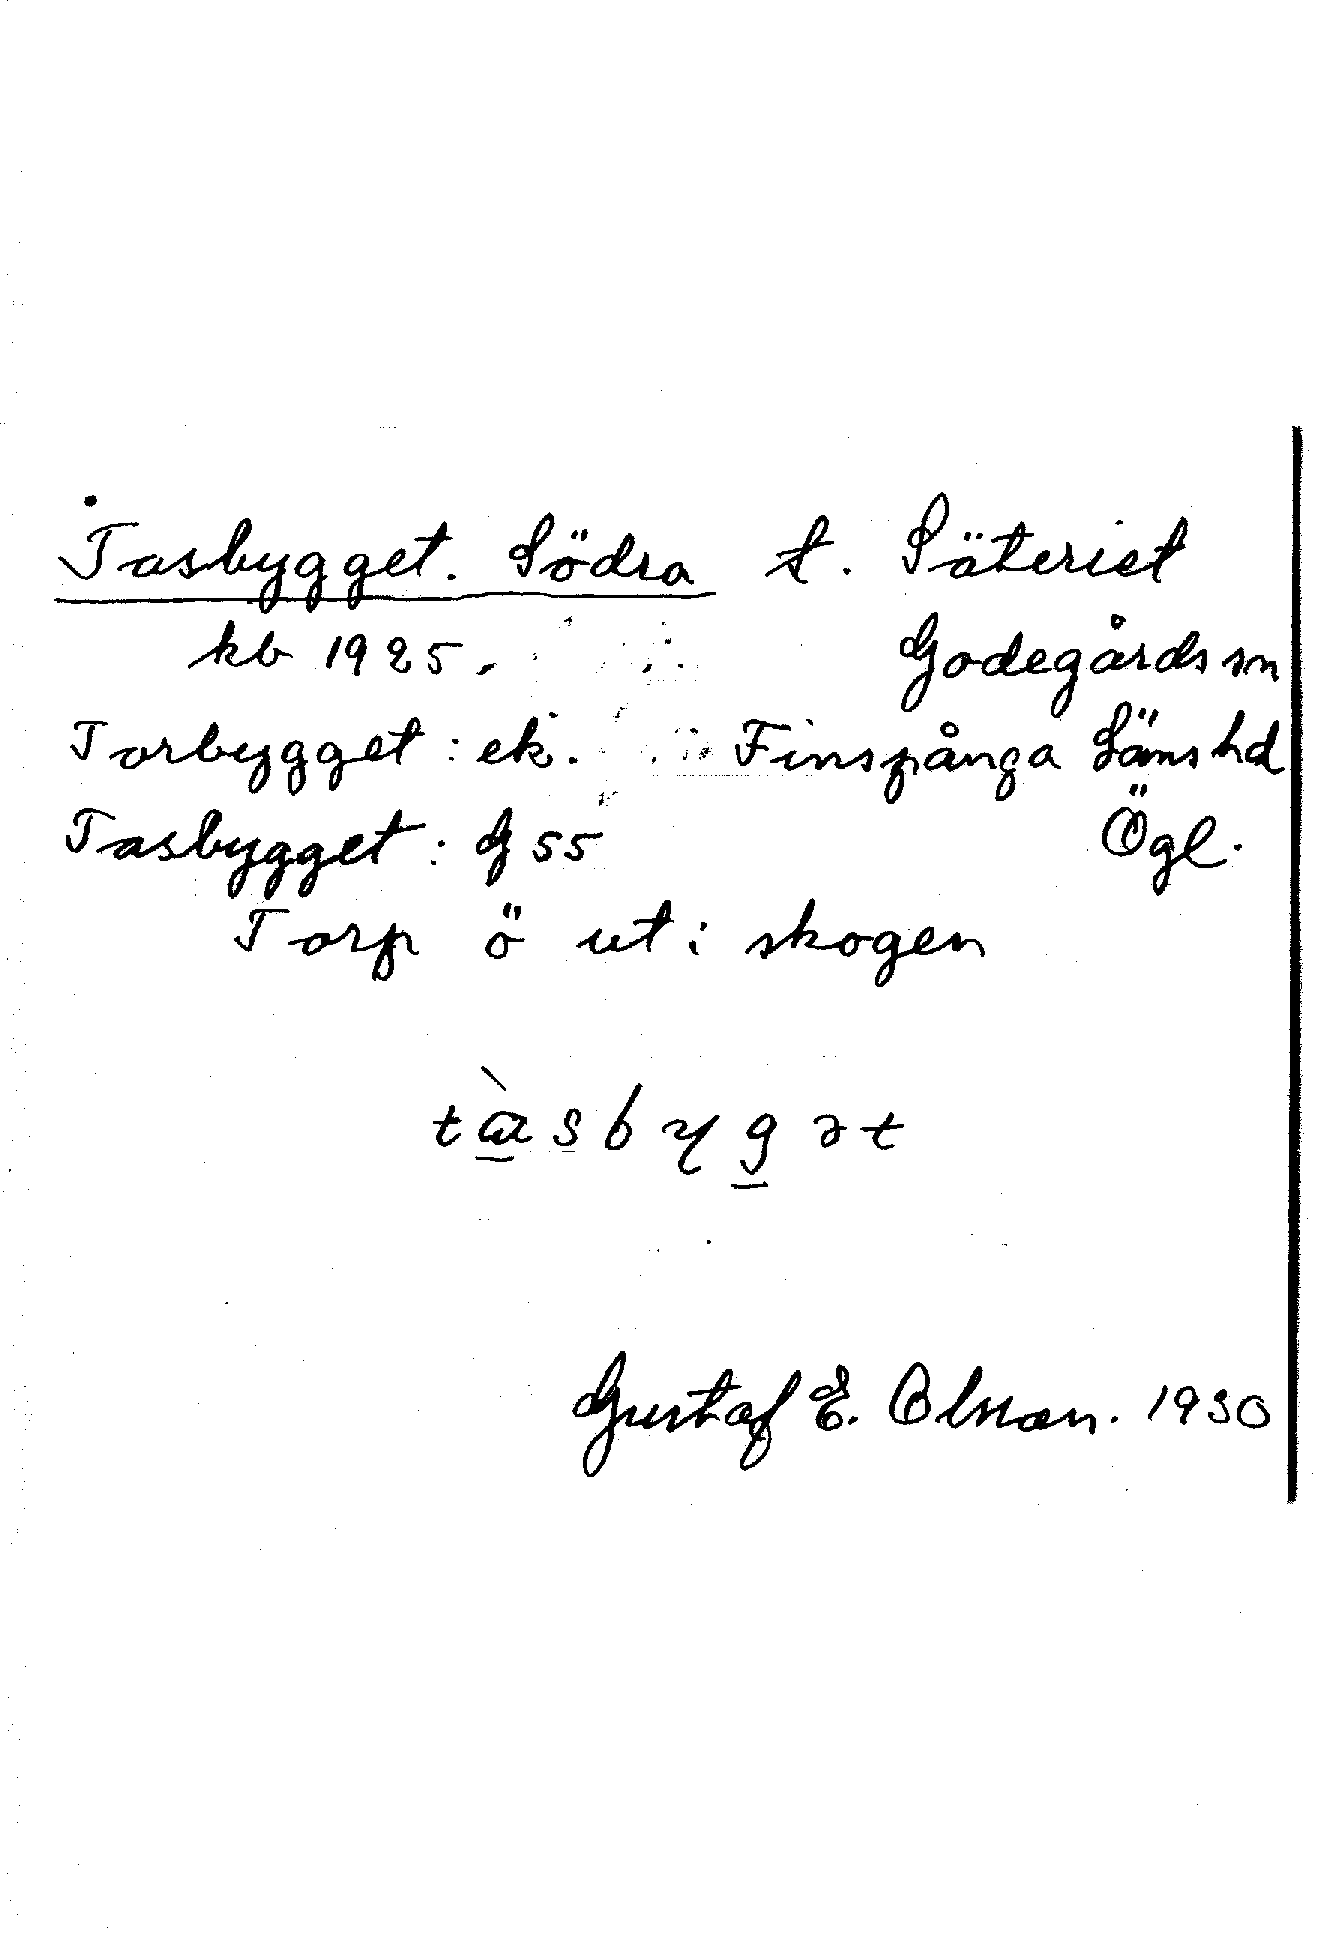 Tasbygget. Södra t. Säteriet
kb 1925. Godegårds sn
Torbygget: ek. Finspånga Läns hd
Tasbygget: G 55 Ögl.
Torp ö ut i skogen
tàsbygət
Gustaf E. Olsson. 1930